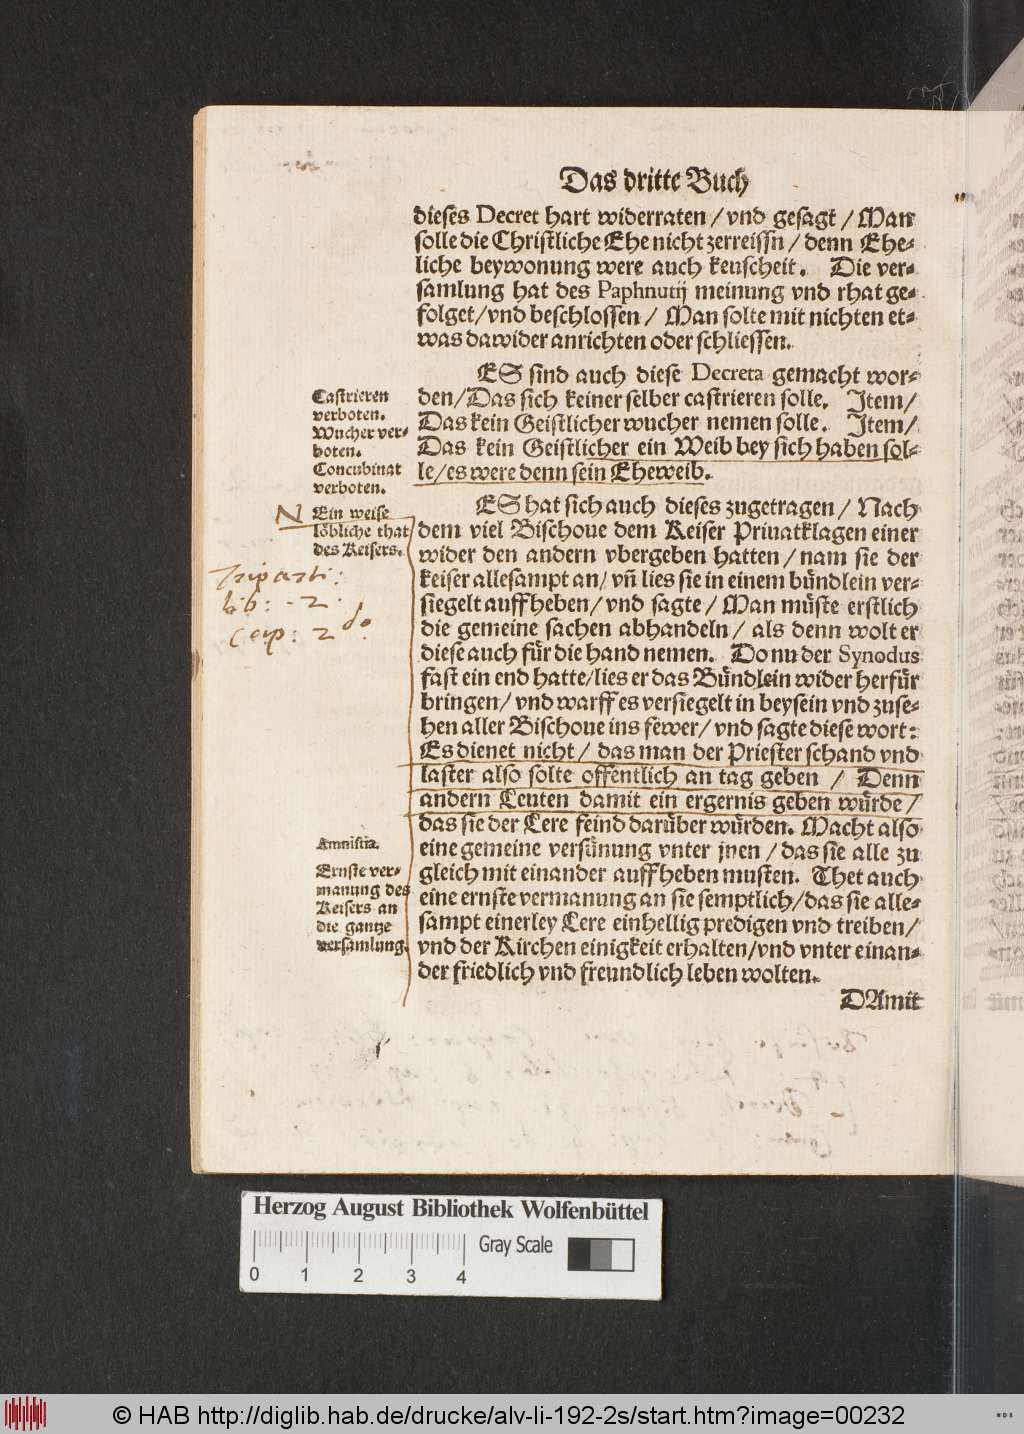 Das dritte Buch
dieses Decret hart widerraten / vnd gesagt / Man
solle die Christliche Ehe nicht zerreissn / denn Ehe-
liche beywonung were auch keuscheit. Die ver-
samlung hat des Paphnutij meinung vnd rhat ge-
folget / vnd beschlossen / Man solte mit nichten et-
was dawider anrichten oder schliessen.
ES sind auch diese Decreta gemacht wor-
den / Das sich keiner selber castrieren solle. Item /
Das kein Geistlicher wucher nemen solle. Item /
Das kein Geistlicher ein Weib bey sich haben sol-
le / es were denn sein Eheweib.
Castrieren
verboten.
Wucher ver-
boten.
Concubinat
verboten.
N
Ein weise
löbliche that
des Keisers.
Triparti:
lib: 2.
Cap: 2 do
ES hat sich auch dieses zugetragen / Nach
dem viel Bischoue dem Keiser Priuatklagen einer
wider den andern vbergeben hatten / nam sie der
keiser allesampt an / vñ lies sie in einem bündlein ver-
siegelt auffheben / vnd sagte / Man müste erstlich
die gemeine sachen abhandeln / als denn wolt er
diese auch für die hand nemen. Do nu der Synodus
fast ein end hatte / lies er das Bündlein wider herfür
bringen / vnd warff es versiegelt in beysein vnd zuse-
hen aller Bischoue ins fewer / vnd sagte diese wort:
Es dienet nicht / das man der Priester schand vnd
laster also solte offentlich an tag geben / Denn
andern Leuten damit ein ergernis geben würde /
das sie der Lere feind darüber würden. Macht also
eine gemeine versünung vnter jnen / das sie alle zu
gleich mit einander auffheben musten. Thet auch
eine ernste vermanung an sie semptlich / das sie alle-
sampt einerley Lere einhellig predigen vnd treiben /
vnd der Kirchen einigkeit erhalten / vnd vnter einan-
der friedlich vnd freundlich leben wolten.
Amnistia.
Ernste ver-
manung des
Keisers an
die gantze
versamlung.
DAmit
Herzog August Bibliothek Wolfenbüttel
Gray Scale
0 1 2 3 4
© HAB http://diglib.hab.de/drucke/alv-li-192-2s/start.htm?image=00232